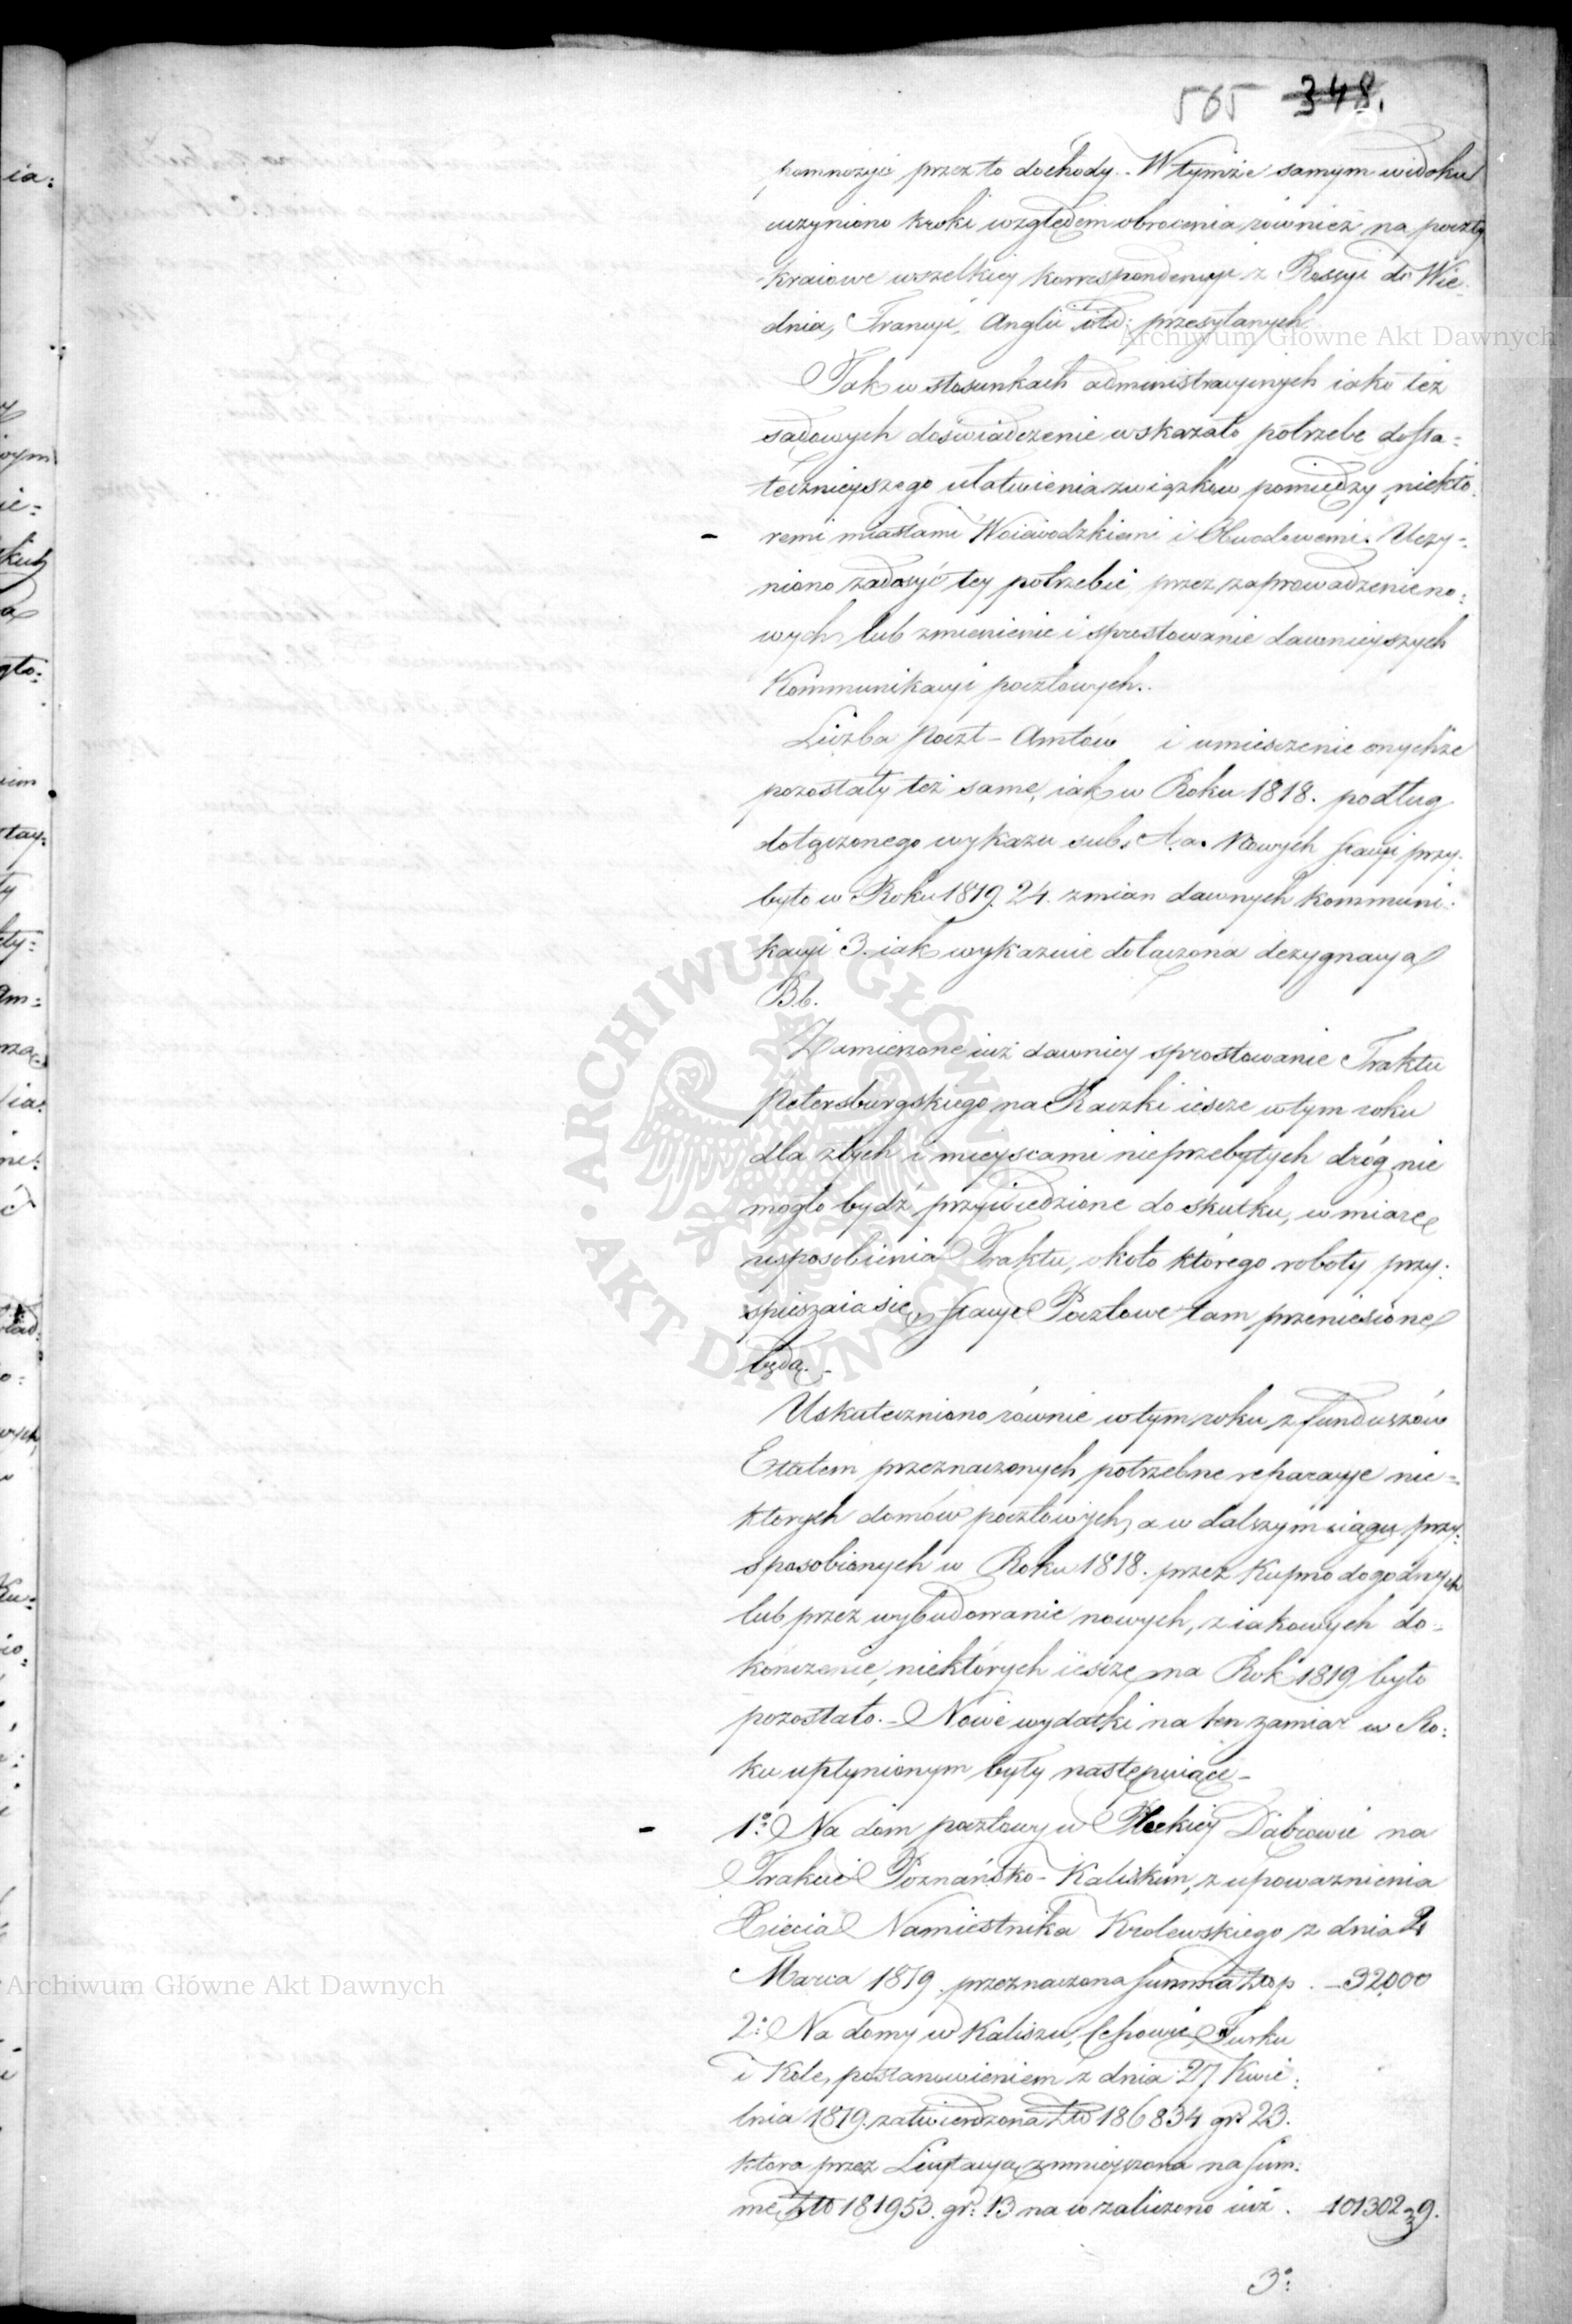 565 348.
pomnożyć przez to dochody. W tymże samym widoku
uczyniono kroki względem obrocenia również na poczty
kraiowe wszelkiey korrespondencyi z Rossyi do Wie-
dnia, Francyi, Anglii itd: przesyłanych
Tak w stosunkach administracyinych iako też
sądowych doświadczenie wskazało potrzebę dosta=
tecznieyszego ułatwienia związków pomiędzy niektó-
remi miastami Woiewodzkiemi i Obwodowemi. Uczy=
niono zadosyć tey potrzebie przez zaprowadzenie no=
wych lub zmienienie i sprostowanie dawnieyszych
Kommunikacyi pocztowych.
Liczba Poczt-Amtów i umieszczenie onychże
pozostały też same, iak w Roku 1818. podług
dołączonego wykazu sub. A.a. Nowych stacyi przy-
było w Roku 1819. 24. zmian dawnych kommuni-
kacyi 3. iak wykazuie dołączona dezygnacya
B.b.
Zamierzone iuż dawniey sprostowanie Traktu
Petersburgskiego na Raczki ieszcze w tym roku
dla złych i mieyscami nieprzebytych dróg nie
mogło bydź przywiedzione do skutku, w miarę
usposobienia Traktu, około którego roboty przy-
spieszaią się, stacye Pocztowe tam przeniesione
będą.
Uskuteczniono równie w tym roku z funduszów
Etatem przeznaczonych potrzebne reparacye nie=
ktorych domów pocztowych, a w dalszym ciągu przy-
sposobionych w Roku 1818. przez Kupno dogodnych
lub przez wybudowanie nowych, z iakowych do-
kończenie, niektórych ieszcze na Rok 1819 było
pozostało. Nowe wydatki na ten zamiar w Ro-
ku upłynionym były następuiące
1º Na dom pocztowy w Pleckiey Dąbrowie na
Trakcie Poznańsko-Kaliskim, z upoważnienia
Xiecia Namiestnika Krolewskiego z dnia 2
Marca 1819. przeznaczona summa złp. 32000
2º Na domy w Kaliszu, Turku
i Kole, postanowieniem z dnia 27 Kwie-
tnia 1819. zatwierdzona zło 186834 gr 23.
ktora przez Licytacyą zmnieyszona na sum-
mę zło 181953. gr. 13 na co zaliczono iuż . 101302 „ 9.
3º
Archiwum Główne Akt Dawnych
Archiwum Główne Akt Dawnych
ARCHIWUM GŁÓWNE AKT DAWNYCH